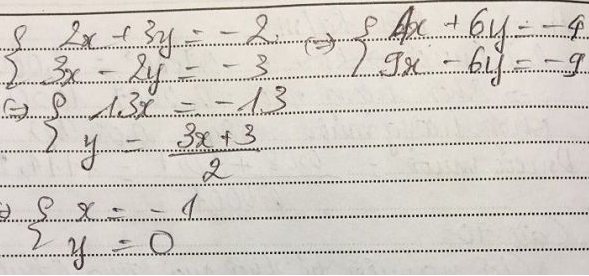 { 2x + 3y = -2 (=) { 4x + 6y = -4
{ 3x - 2y = -3 { 9x - 6y = -9
(=) { 13x = -13
{ y = (3x+3)/2
=) { x = -1
{ y = 0